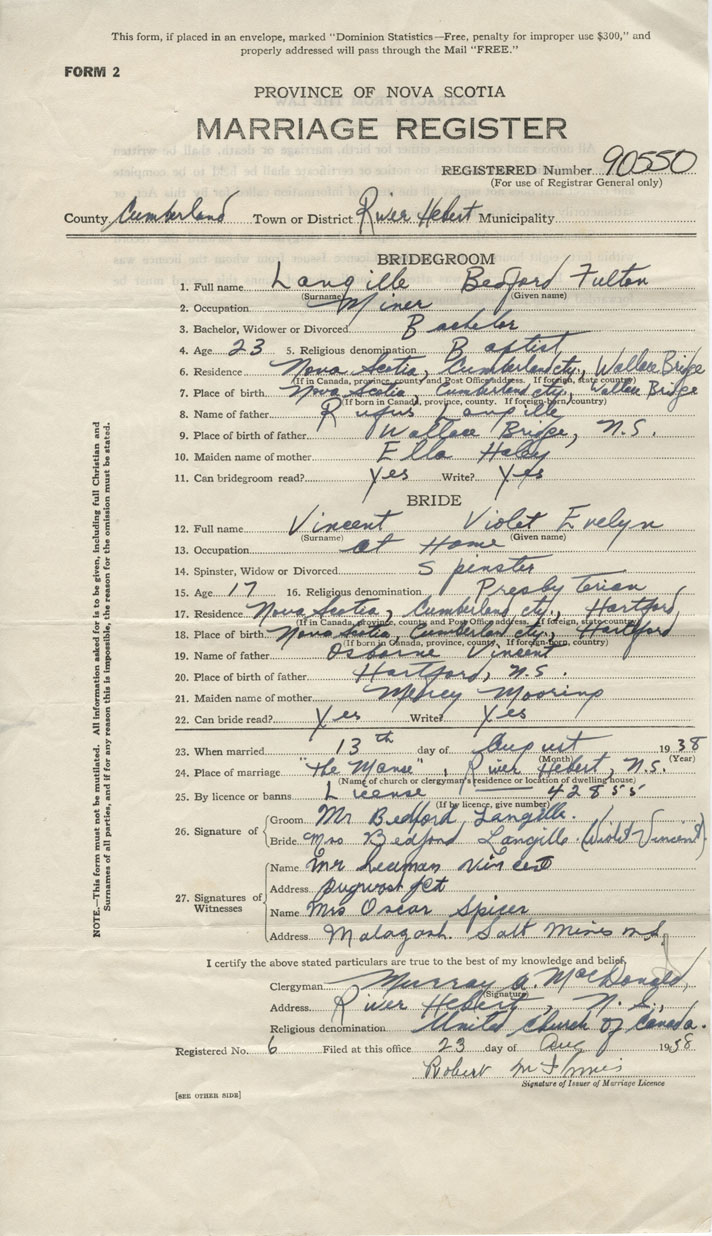 This form, if placed in an envelope, marked "Dominion Statistics—Free, penalty for improper use $300," and
properly addressed will pass through the Mail "FREE."
FORM 2
PROVINCE OF NOVA SCOTIA
MARRIAGE REGISTER
REGISTERED Number 90550
(For use of Registrar General only)
County Cumberland Town or District River Hebert Municipality
BRIDEGROOM
1. Full name Langille Bedford Fulton
(Surname) (Given name)
2. Occupation Miner
3. Bachelor, Widower or Divorced Bachelor
4. Age 23 5. Religious denomination Baptist
6. Residence Nova Scotia, Cumberland cty., Wallace Bridge
(If in Canada, province, county and Post Office address. If foreign, state country)
7. Place of birth Nova Scotia, Cumberland cty., Wallace Bridge
(If born in Canada, province, county. If foreign-born, country)
8. Name of father Rufus Langille
9. Place of birth of father Wallace Bridge, N.S.
10. Maiden name of mother Ella Haley
11. Can bridegroom read? Yes Write? Yes
BRIDE
12. Full name Vincent Violet Evelyn
(Surname) (Given name)
13. Occupation at Home
14. Spinster, Widow or Divorced Spinster
15. Age 17 16. Religious denomination Presbyterian
17. Residence Nova Scotia, Cumberland cty., Hartford,
(If in Canada, province, county and Post Office address. If foreign, state country)
18. Place of birth Nova Scotia, Cumberland cty., Hartford
(If born in Canada, province, county. If foreign-born, country)
19. Name of father Osborne Vincent
20. Place of birth of father Hartford, N.S.
21. Maiden name of mother Mercy Mooring
22. Can bride read? Yes Write? Yes
23. When married 13th day of August 1938
(Month) (Year)
24. Place of marriage "The Manse", River Hebert, N.S.
(Name of church or clergyman's residence or location of dwelling house)
25. By licence or banns License 42855
(If by licence, give number)
26. Signature of Groom Mr Bedford Langille.
Bride Mrs Bedford Langille. (Violet Vincent)
27. Signatures of Witnesses
Name Mr Vincent
Address Pugwash Jct
Name Mrs Oscar Spicer
Address Malagash Salt Mines N.S.
I certify the above stated particulars are true to the best of my knowledge and belief,
Clergyman Murray A. MacDonald,
(Signature)
Address River Hebert, N.S.,
Religious denomination United Church of Canada.
Registered No. 6 Filed at this office 23 day of Aug 1938
Robert
Signature of Issuer of Marriage Licence
[SEE OTHER SIDE]
NOTE.—This form must not be mutilated. All information asked for is to be given, including full Christian and
Surnames of all parties, and if for any reason this is impossible, the reason for the omission must be stated.